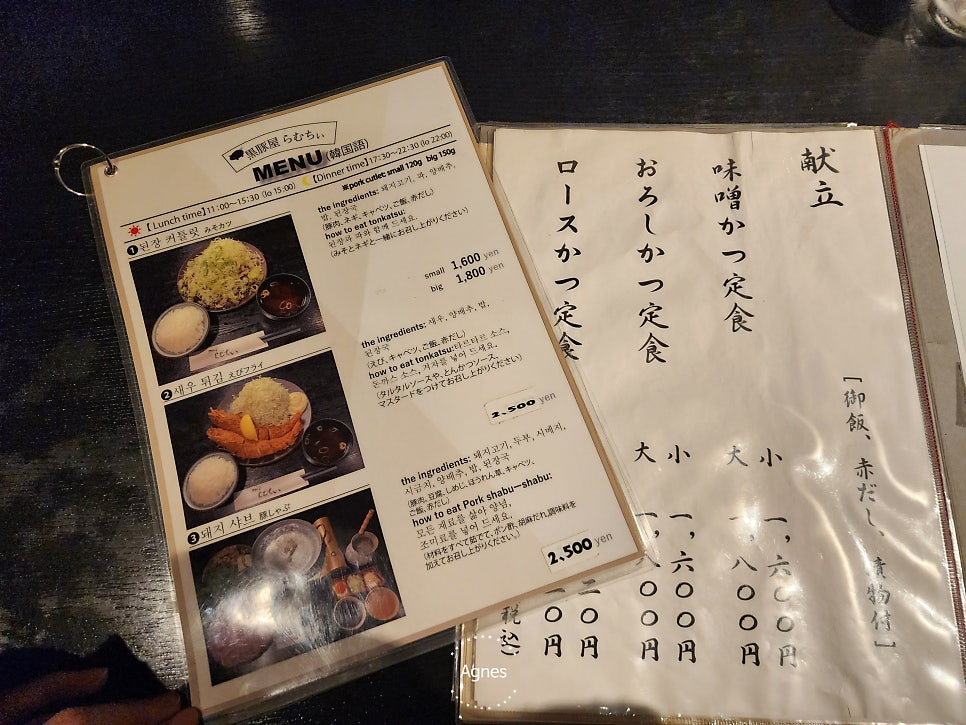 黒豚屋 らむちぃ
MENU(韓国語)
【Lunch time】11:00～15:30 (lo 15:00) 【Dinner time】17:30～22:30 (lo 22:00)
※pork cutlet: small 120g big 150g
❶된장 커틀릿 みそカツ
the ingredients: 돼지고기, 파, 양배추,
밥, 된장국
(豚肉、ネギ、キャベツ、ご飯、赤だし)
how to eat tonkatsu:
된장과 파와 함께 드세요.
(みそとネギと一緒にお召し上がりください)
small 1,600 yen
big 1,800 yen
❷새우 튀김 えびフライ
the ingredients: 새우, 양배추, 밥,
된장국
(えび、キャベツ、ご飯、赤だし)
how to eat tonkatsu:타르타르 소스,
돈까스 소스, 겨자를 넣어 드세요.
(タルタルソースや、とんかつソース、
マスタードをつけてお召し上がりください)
2,500 yen
❸돼지 샤브 豚しゃぶ
the ingredients: 돼지고기, 두부, 시메지,
시금치, 양배추, 밥, 된장국
(豚肉、豆腐、しめじ、ほうれん草、キャベツ、
ご飯、赤だし)
how to eat Pork shabu–shabu:
모든 재료를 삶아 양밤,
조미료를 넣어 드세요.
(材料をすべて茹でて、ポン酢、胡麻だれ、調味料を
加えてお召し上がりください。)
2,500 yen
献立
「御飯、赤だし、漬物付」
味噌かつ定食
小 一,六〇〇円
大 一,八〇〇円
おろしかつ定食
小 一,六〇〇円
大 一,八〇〇円
ロースかつ定食
二〇円
〇円
税込)
Agnes